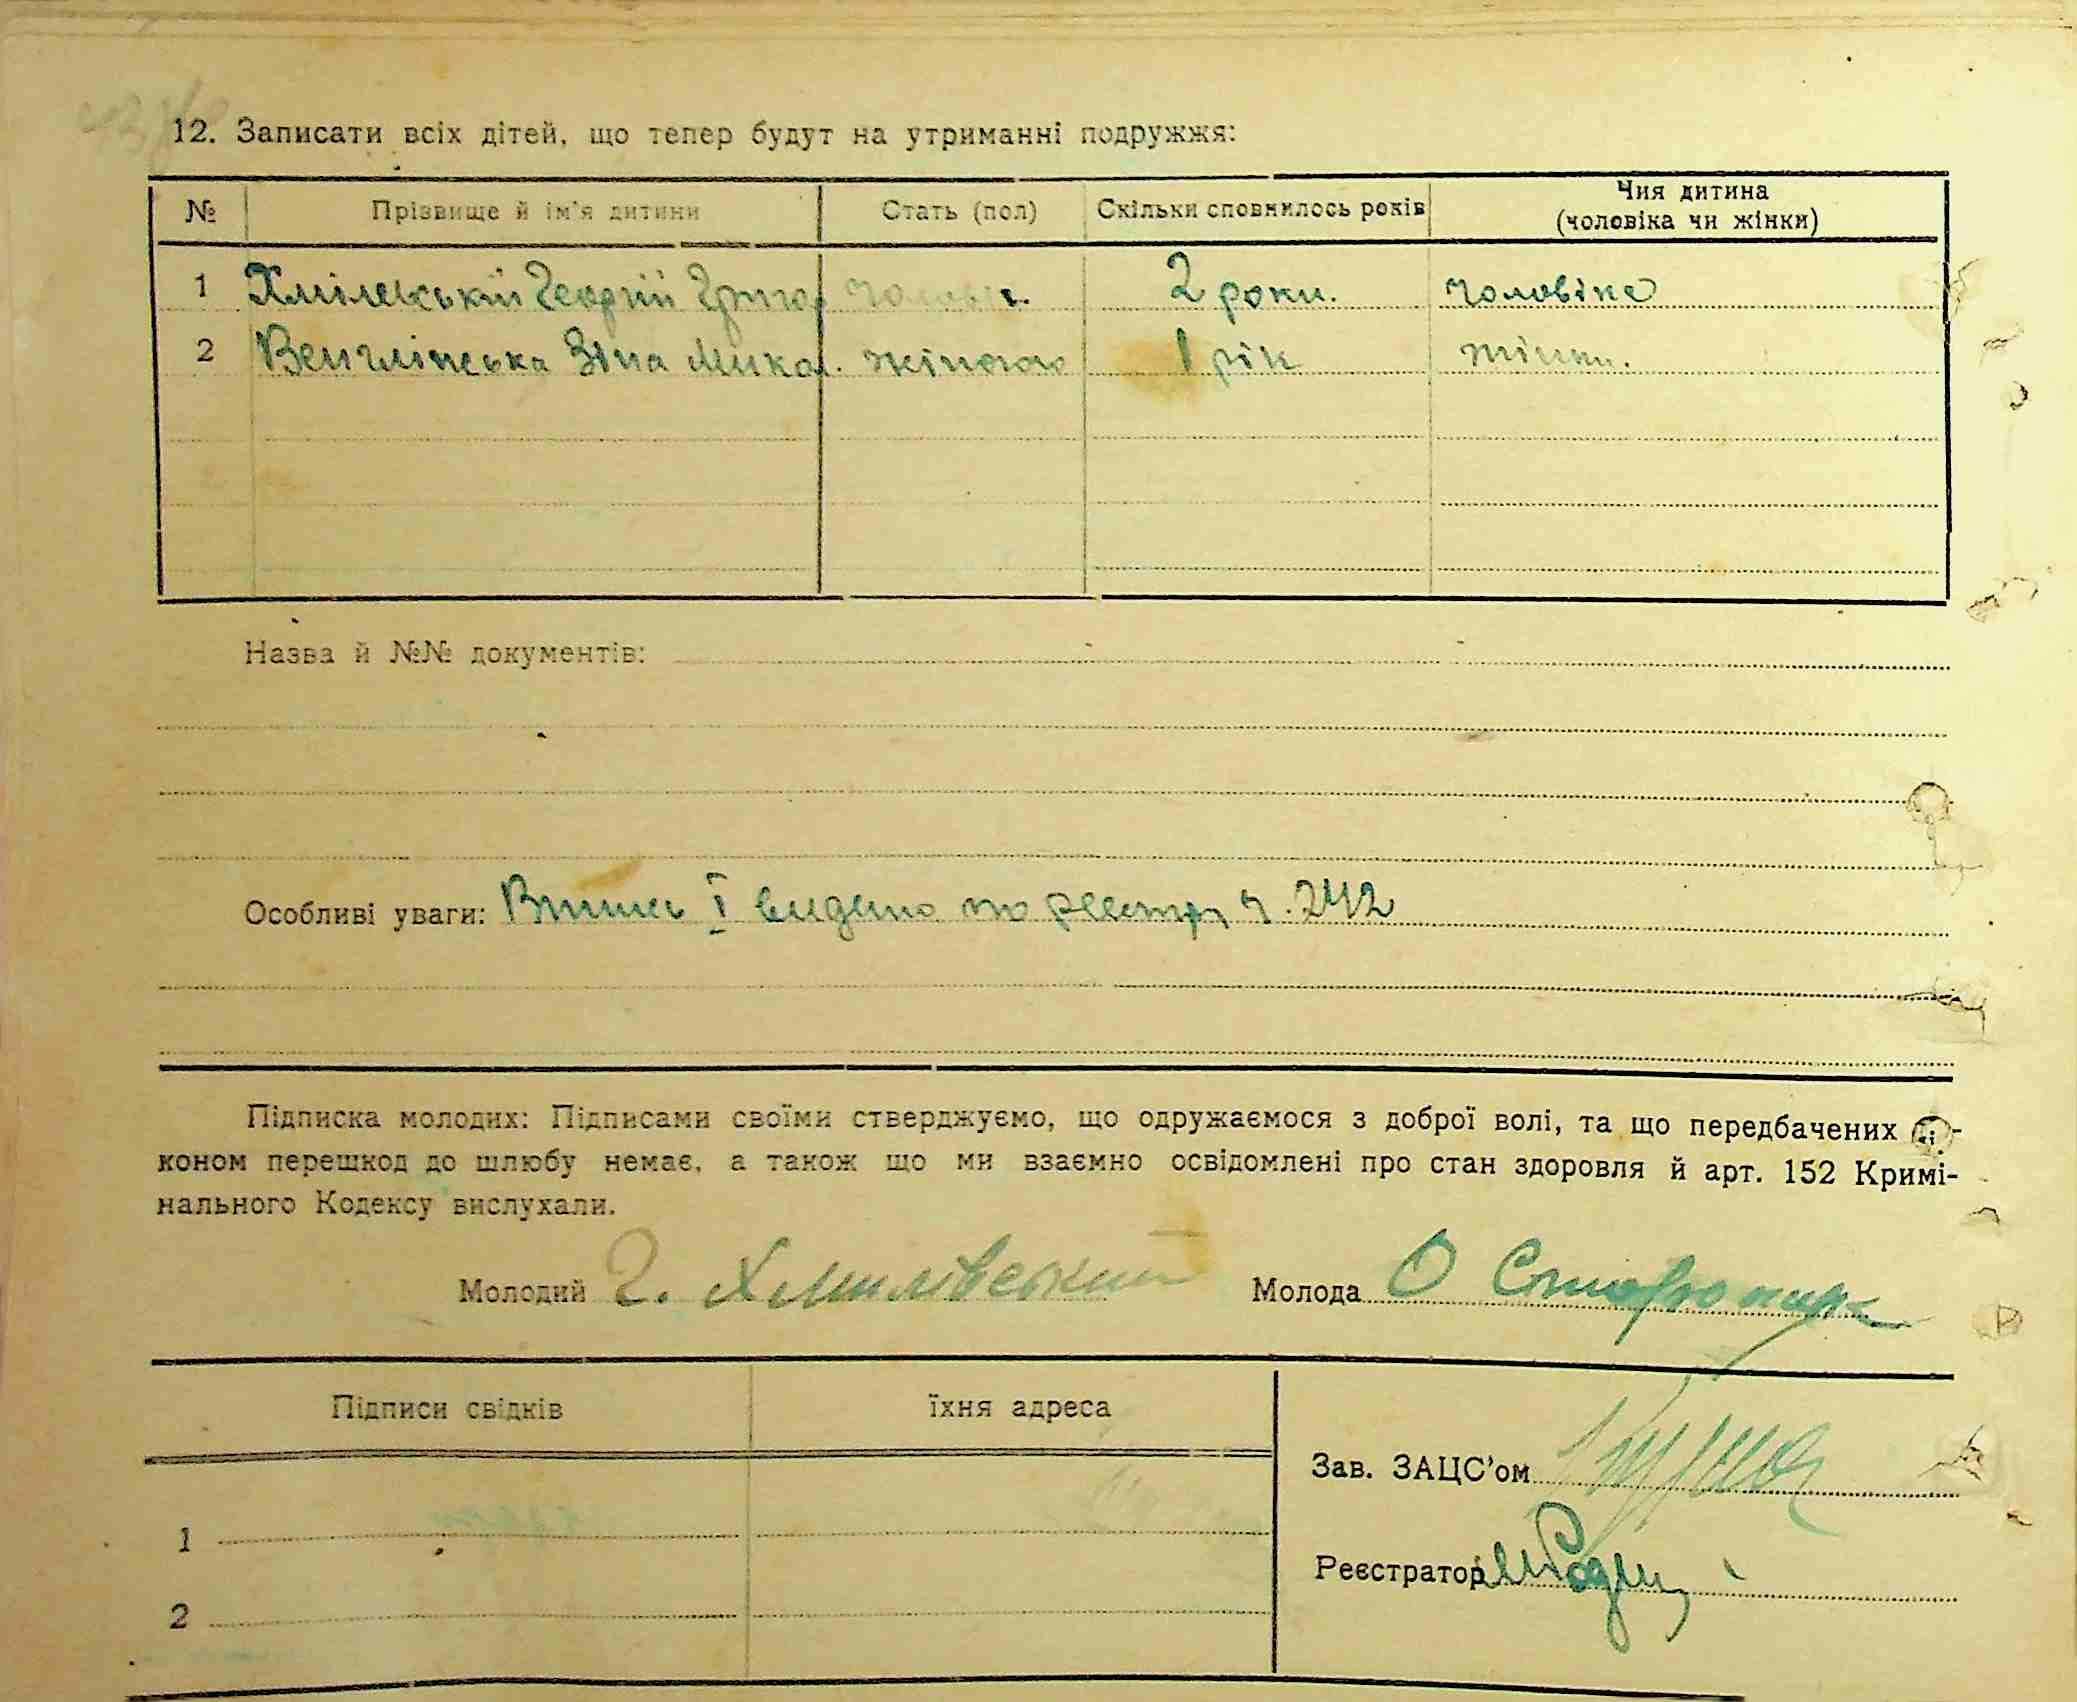 12. Записати всіх дітей, що тепер будут на утриманні подружжя:
№ Прізвище й ім'я дитини Стать (пол) Скільки сповнилось років Чия дитина (чоловіка чи жінки)
1 Хмілевський Георгій Григор чоловіч. 2 роки. чоловіка
2 Венглінська Зіна Микол. жіночо 1 рік жінки.
Назва й №№ документів:
Особливі уваги: Випись І видано по реестру ч. 242
Підписка молодих: Підписами своїми стверджуємо, що одружаємося з доброї волі, та що передбачених
коном перешкод до шлюбу немає, а також що ми взаємно освідомлені про стан здоровля й арт. 152 Кримі-
нального Кодексу вислухали.
Молодий Г. Хмилівський Молода О
Підписи свідків їхня адреса
Зав. ЗАЦС'ом
1
Реєстратор
2